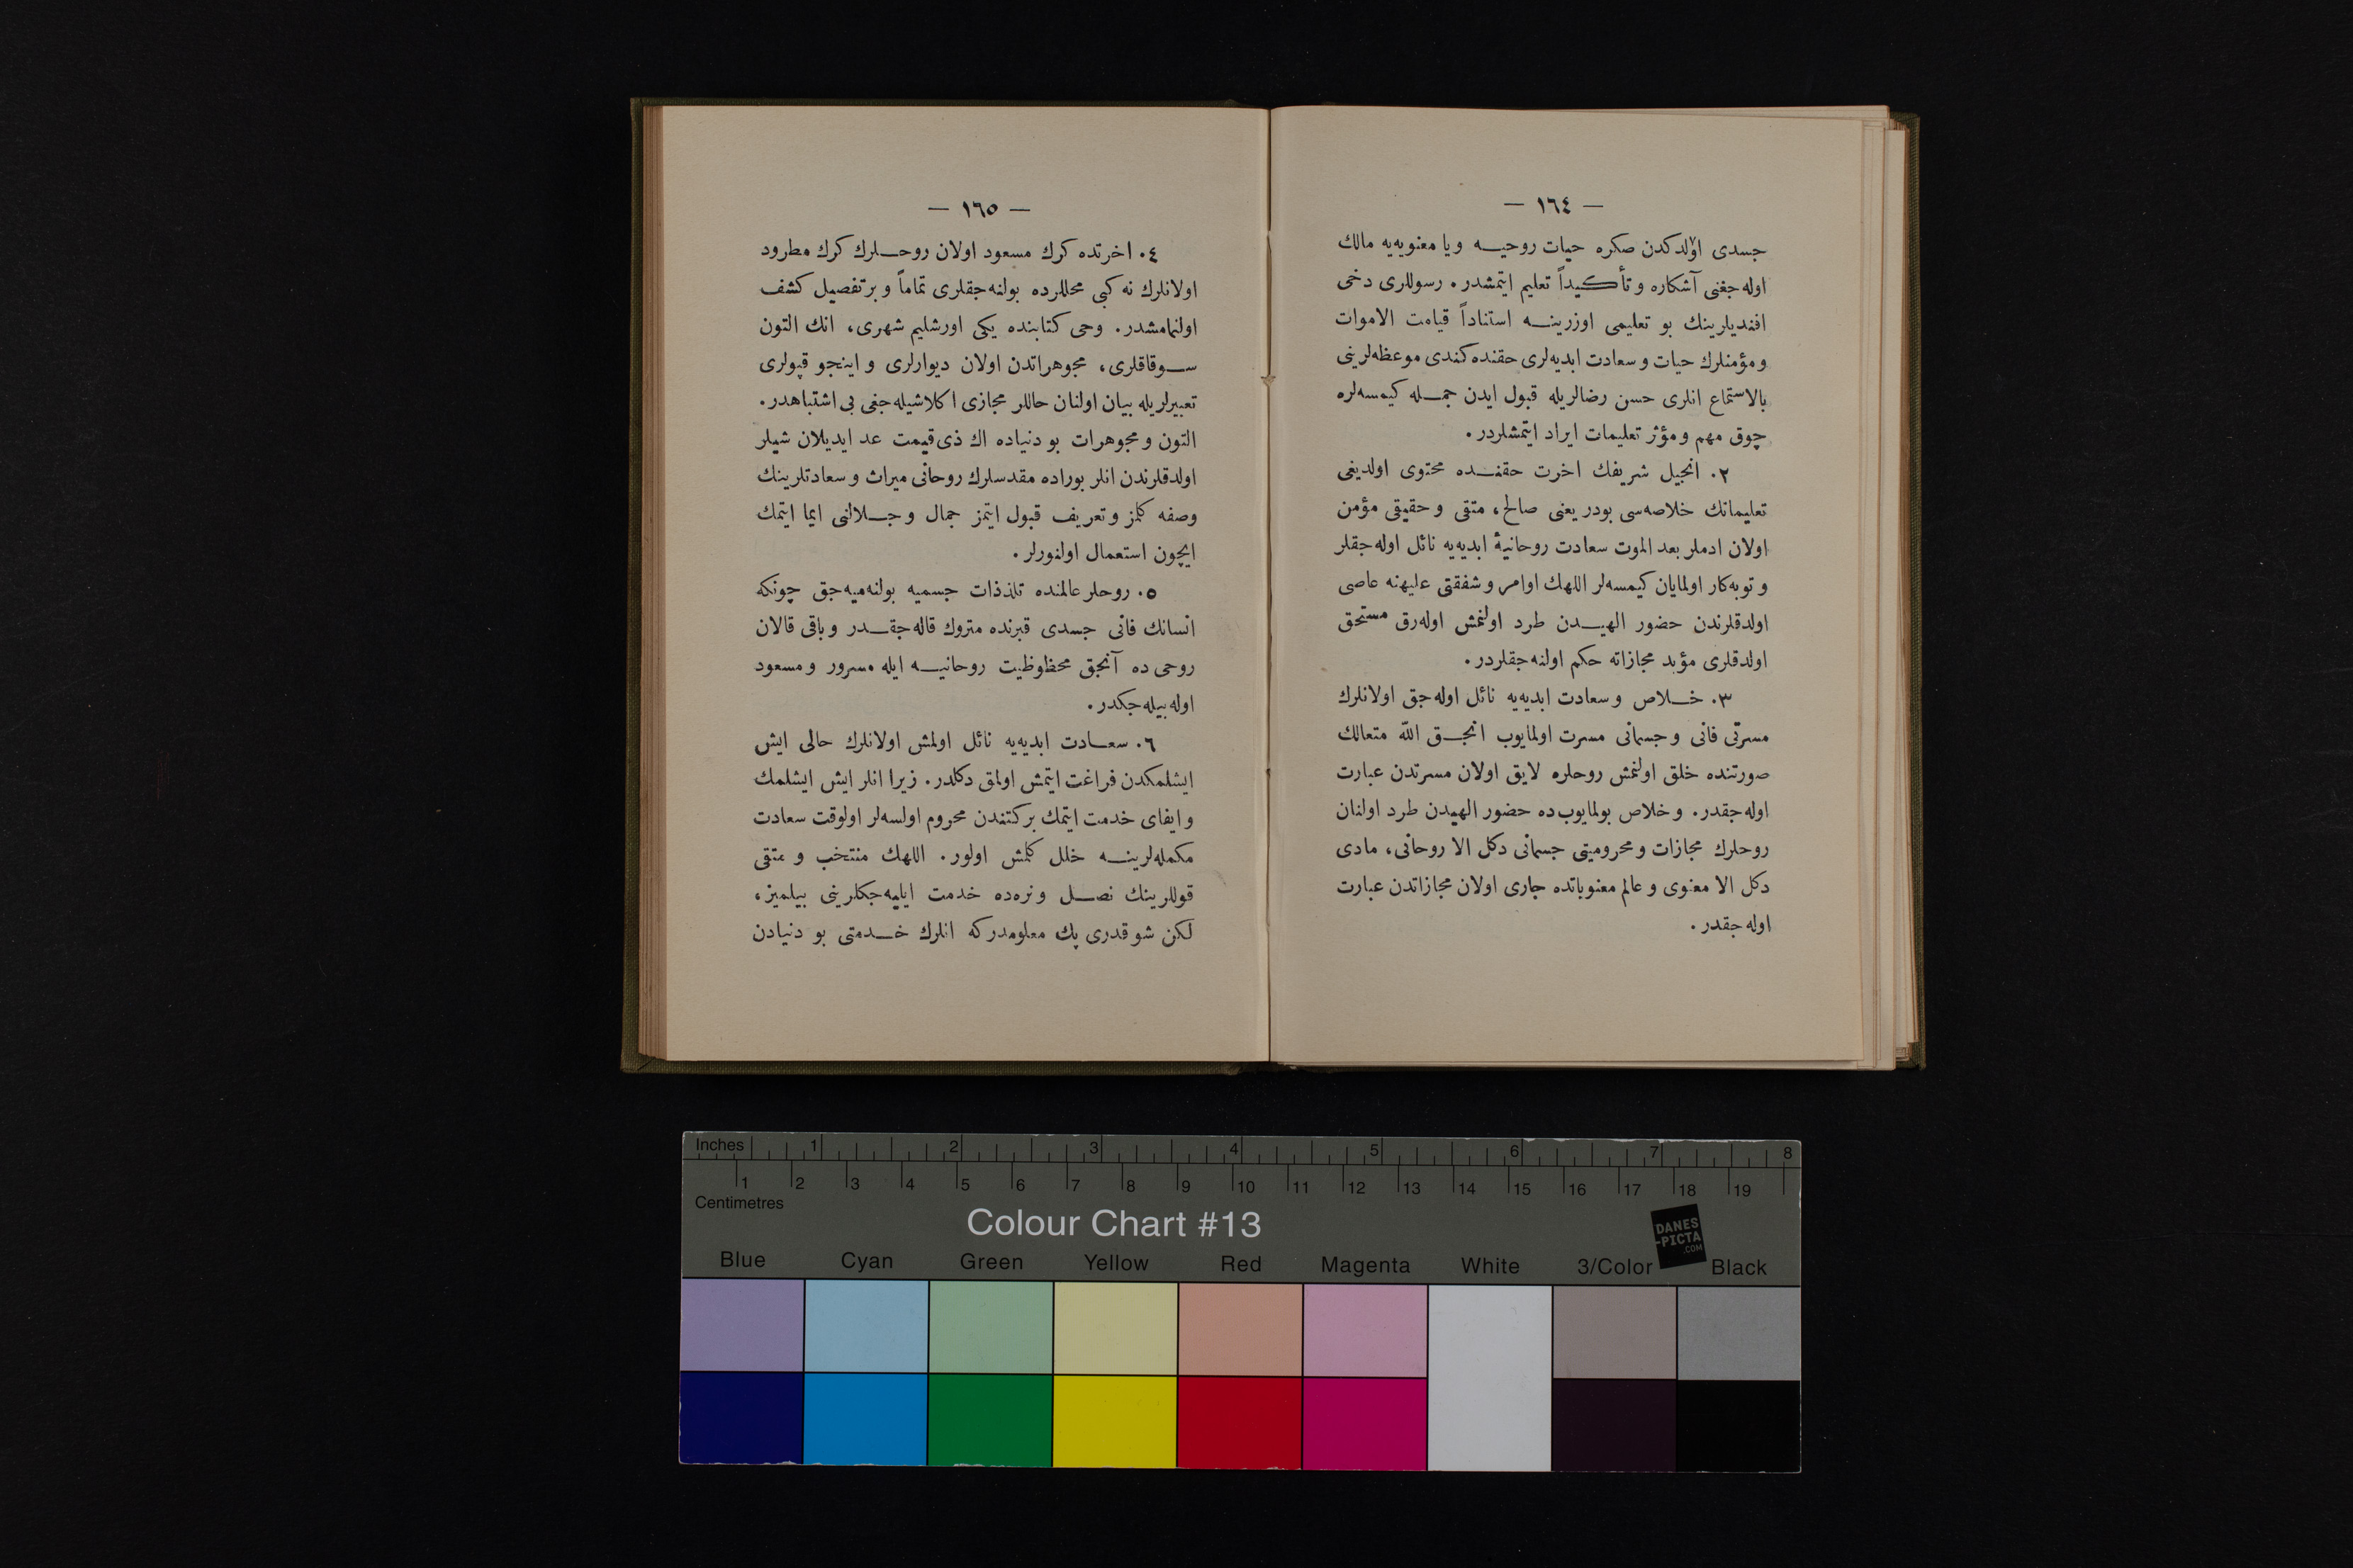 — ١٦٤ —
جسدی اۆلدكدن صكره حیات روحیـه ویا معنویه‌یه مالك
اوله‌جغنی آشكاره و تأكـیداً تعلیم ایتمشدر. رسوللری دخی
افندیلرینك بو تعلیمی اوزرینـه استناداً قیامت الاموات
و مؤمنلرك حیات و سعادت ابدیه‌لری حقنده كندی موعظه‌لرینی
بالاستماع انلری حسن رضالریله قبول ایدن جمـله كیمسه‌لره
چوق مهم و مؤثر تعلیمات ایراد ایتمشلردر.
٢. انجیل شریفك اخرت حقنـده محتوی اولدیغی
تعلیماتك خلاصه‌سی بودر یعنی صالح، متقی و حقیقی مؤمن
اولان ادملر بعد الموت سعادت روحانیۀ ابدیه‌یه نائل اوله‌جقلر
و توبه‌كار اولمایان كیمسه‌لر اللهك اوامر و شفقتی علیهنه عاصی
اولدقلرندن حضور الهیـدن طرد اولنمش اوله‌رق مستحق
اولدقلری مؤبد مجازاته حكم اولنه‌جقلردر.
٣. خـلاص و سعادت ابدیه‌یه نائل اوله‌جق اولانلرك
مسرتی فانی و جسمانی مسرت اولمایوب انجـق الله متعالك
صورتنده خلق اولنمش روحلره لایق اولان مسرتدن عبارت
اوله‌جقدر. و خلاص بولمایوب‌ده حضور الهیدن طرد اولنان
روحلرك مجازات و محرومیتی جسمانی دكل الا روحانی، مادی
دكل الا معنوی و عالم معنویاتده جاری اولان مجازاتدن عبارت
اوله‌جقدر.
— ١٦٥ —
٤. اخرتده كرك مسعود اولان روحـلرك كرك مطرود
اولانلرك نه كبی محللرده بولنه‌جقلری تماماً و بر تفصیل كشف
اولنمامشدر. وحی كتابنده یكی اورشلیم شهری، انك التون
سـوقاقلری، مجوهراتدن اولان دیوارلری و اینجو قپولری
تعبیرلریله بیان اولنان حاللر مجازی اكلاشیله‌جغی بی‌اشتباهدر.
التون و مجوهرات بو دنیاده اك ذی‌قیمت عد ایدیلان شیلر
اولدقلرندن انلر بوراده مقدسلرك روحانی میراث و سعادتلرینك
وصفه كلمز و تعریف قبول ایتمز جمال و جـلالنی ایما ایتمك
ایچون استعمال اولنورلر.
٥. روحلر عالمنده تلذذات جسمیه بولنه‌میه‌جق چونكه
انسانك فانی جسدی قبرنده متروك قاله‌جقـدر و باقی قالان
روحی ده آنجق محظوظیت روحانیـه ایله مسرور و مسعود
اوله‌بیله‌جكدر.
٦. سعـادت ابدیه‌یه نائل اولمش اولانلرك حالی ایش
ایشلمكدن فراغت ایتمش اولمق دكلدر. زیرا انلر ایش ایشلمك
و ایفای خدمت ایتمك بركتندن محروم اولسه‌لر اولوقت سعادت
مكمله‌لرینـه خلل كلمش اولور. اللهك منتخب و متقی
قوللرینك نصـل و نره‌ده خدمت ایلیه‌جكلرینی بیلمیز،
لكن شو قدری پك معلومدركه انلرك خـدمتی بو دنیادن
Inches 1 2 3 4 5 6 7 8
1 2 3 4 5 6 7 8 9 10 11 12 13 14 15 16 17 18 19
Centimetres
Colour Chart #13
DANES
-PICTA
.COM
Blue Cyan Green Yellow Red Magenta White 3/Color Black